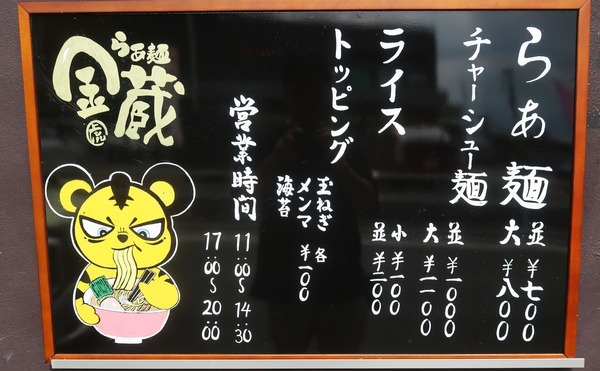 らぁ麺 並 ¥七〇〇
大 ¥八〇〇
チャーシュー麺 並 ¥一〇〇〇
大 ¥一一〇〇
ライス 小 ¥一〇〇
並 ¥二〇〇
トッピング
玉ねぎ 各
メンマ ¥一〇〇
海苔
営業時間
11:00〜14:30
17:00〜20:00
らあ麺
金蔵